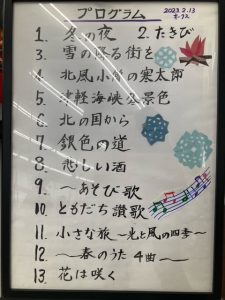 プログラム
2023.2.13
1. 冬の夜 2. たきび
3. 雪の降る街を
4. 北風小僧の寒太郎
5. 津軽海峡冬景色
6. 北の国から
7. 銀色の道
8. 悲しい酒
9. 〜あそび歌
10. ともだち讃歌
11. 小さな旅〜光と風の四季〜
12. 〜春のうた 4曲〜
13. 花は咲く